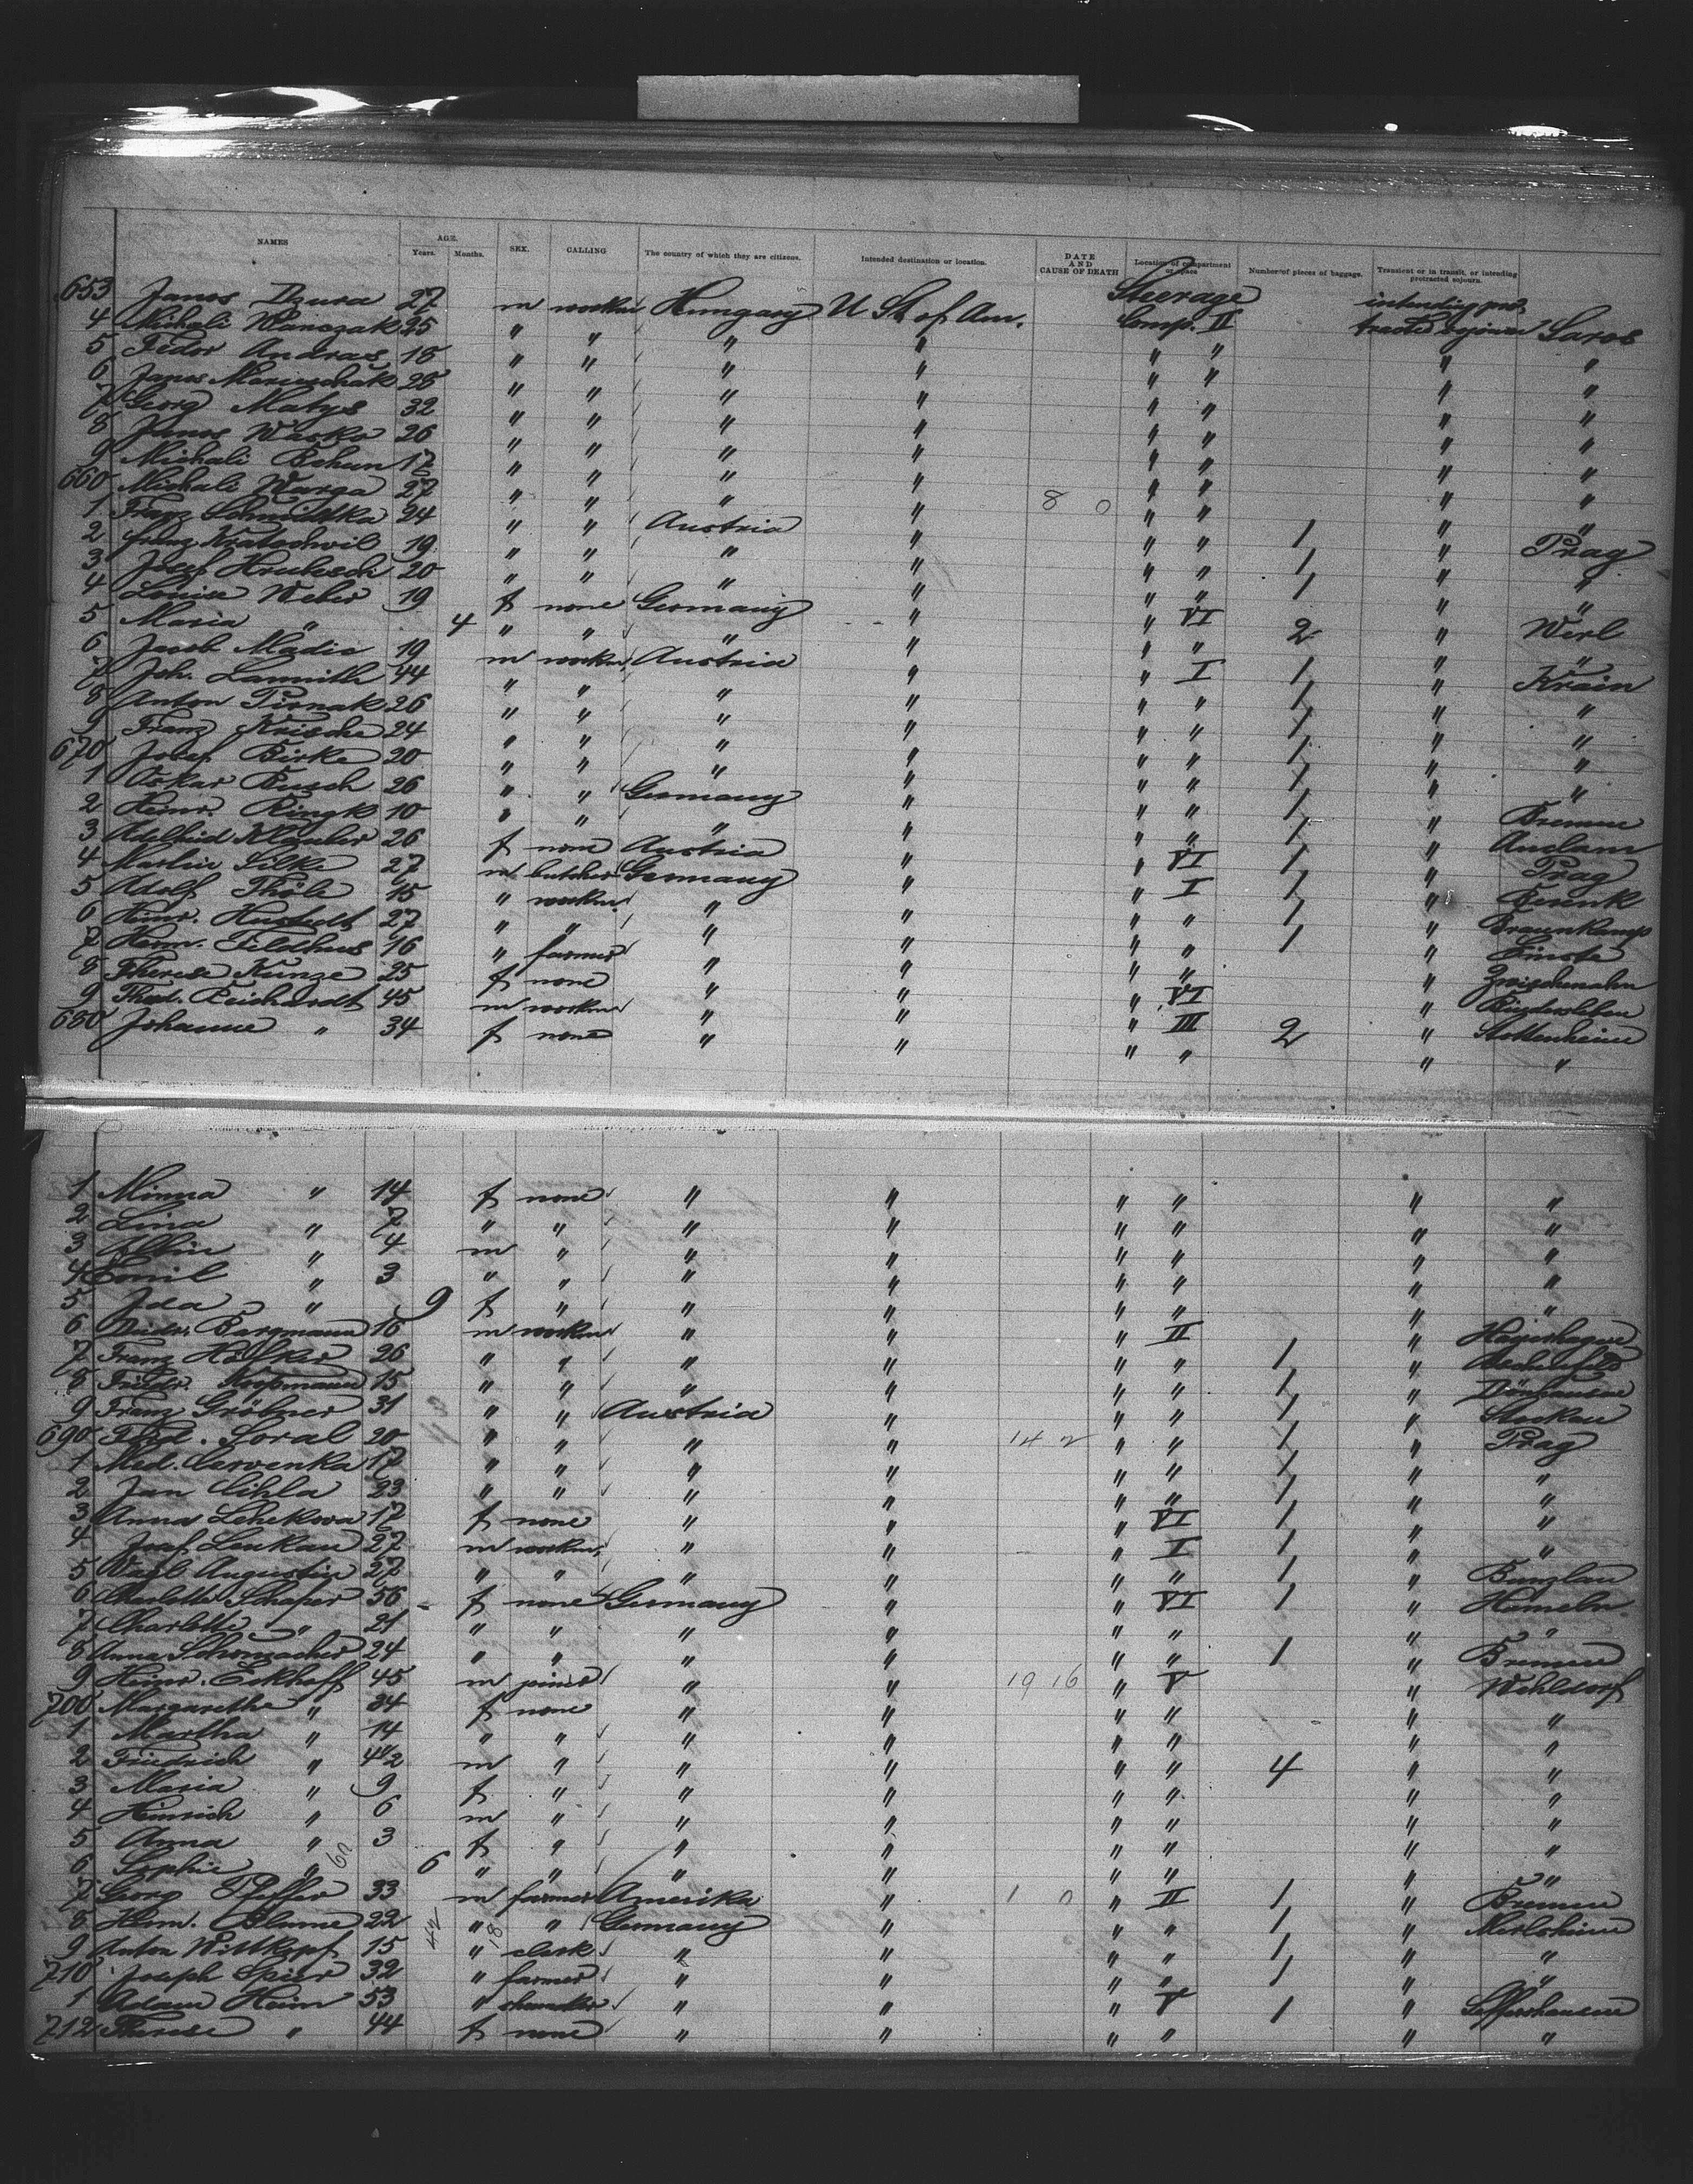 NAMES AGE. Years. Months. SEX. CALLING The country of which they are citizens. Intended destination or location. DATE AND CAUSE OF DEATH Location of compartment or space Number of pieces of baggage. Transient or in transit, or intending protracted sojourn.
653 Janos Dzura 27 m worker Hungary U St. of Am. Steerage Comp. II intending protracted sojourn Saros
4 Michali 25 " " " " " " " "
5 Fedor Andras 18 " " " " " " " "
6 Janos 28 " " " " " " " "
7 Georg Matys 32 " " " " " " " "
8 Janos Wasko 26 " " " " " " " "
9 Michali Bohun 17 " " " " " " " "
660 Michali Warga 27 " " " " 8 0 " " " "
1 Franz 24 " " Austria " " " 1 " Prag
2 Franz Kratochvil 19 " " " " " " 1 " "
3 Josef 20 " " " " " " 1 " "
4 Louise Weber 19 f none Germany " " VI 2 " Werl
5 Maria " 4 " " " " " " " "
6 Jacob Mädic 19 m worker Austria " " I 1 " Krain
7 Joh. 44 " " " " " " 1 " "
8 Anton Pirnak 26 " " " " " " 1 " "
9 Franz Krische 24 " " " " " " 1 " "
670 Josef Birke 20 " " " " " " 1 " "
1 Oskar Rusch 26 " " Germany " " " 1 " Bremen
2 Heinr. Ringk 10 " " " " " " 1 " Anclam
3 Adelheid 26 f none Austria " " VI 1 " Prag
4 Martin Silke 27 m butcher Germany " " I 1 "
5 Adolf Thöle 15 " worker " " " " 1 " Braunkamp
6 Heinr. Hustedt 27 " " " " " " 1 "
7 Herm. Feldhus 16 " farmer " " " " " Zwischenahn
8 Therese Kunze 25 f none " " " VI " Ringdersleben
9 Theod. Reichardt 45 m worker " " " III 2 " Stottenheim
680 Johanne " 34 f none " " " " " "
1 Minna " 14 f none " " " " " "
2 Lina " 7 " " " " " " " "
3 Albin " 4 m " " " " " " "
4 Emil " 3 " " " " " " " "
5 Ida " 9 f " " " " " " "
6 Diedr. Bargmann 16 m worker " " " II 1 "
7 Franz Hölker 26 " " " " " " 1 "
8 Friedr. Koopmann 15 " " " " " " 1 " Dönhausen
9 Franz Gröbner 31 " " Austria " " " 1 " Stockau
690 Ferd. Soral 20 " " " " 14 2 " " 1 " Prag
1 Med. Cervenka 17 " " " " " " 1 " "
2 Jan Cihla 23 " " " " " " 1 " "
3 Anna 17 f none " " " VI 1 " "
4 Josef 27 m worker " " " I 1 " "
5 Augustin 27 " " " " " " 1 " Bunzlau
6 Charlotte Schaper 56 f none Germany " " VI 1 " Hameln
7 Charlotte " 21 " " " " " " " "
8 Anna 24 " " " " " " 1 " Bremen
9 Heinr. Eckhoff 45 m joiner " " 19 16 " V " Wehldorf
700 Margarethe " 34 f none " " " " " "
1 Martha " 14 " " " " " " " "
2 Friedrich " 4 1/2 m " " " " " 4 " "
3 Maria " 9 f " " " " " " "
4 Heinrich " 6 m " " " " " " "
5 Anna " 3 f " " " " " " "
6 Sophie " 6 " " " " " " " "
7 Georg Pfeffer 33 m farmer Amerika " 1 0 " II 1 " Bremen
8 Herm. Blume 22 " " Germany " " " 1 " Merlsheim
9 Anton Wittkopf 15 " clerk " " " " 1 " "
710 Joseph Spier 32 " farmer " " " " 1 " "
1 Adam Heim 53 " " " " V 1 "
712 Therese " 44 f none " " " " " "